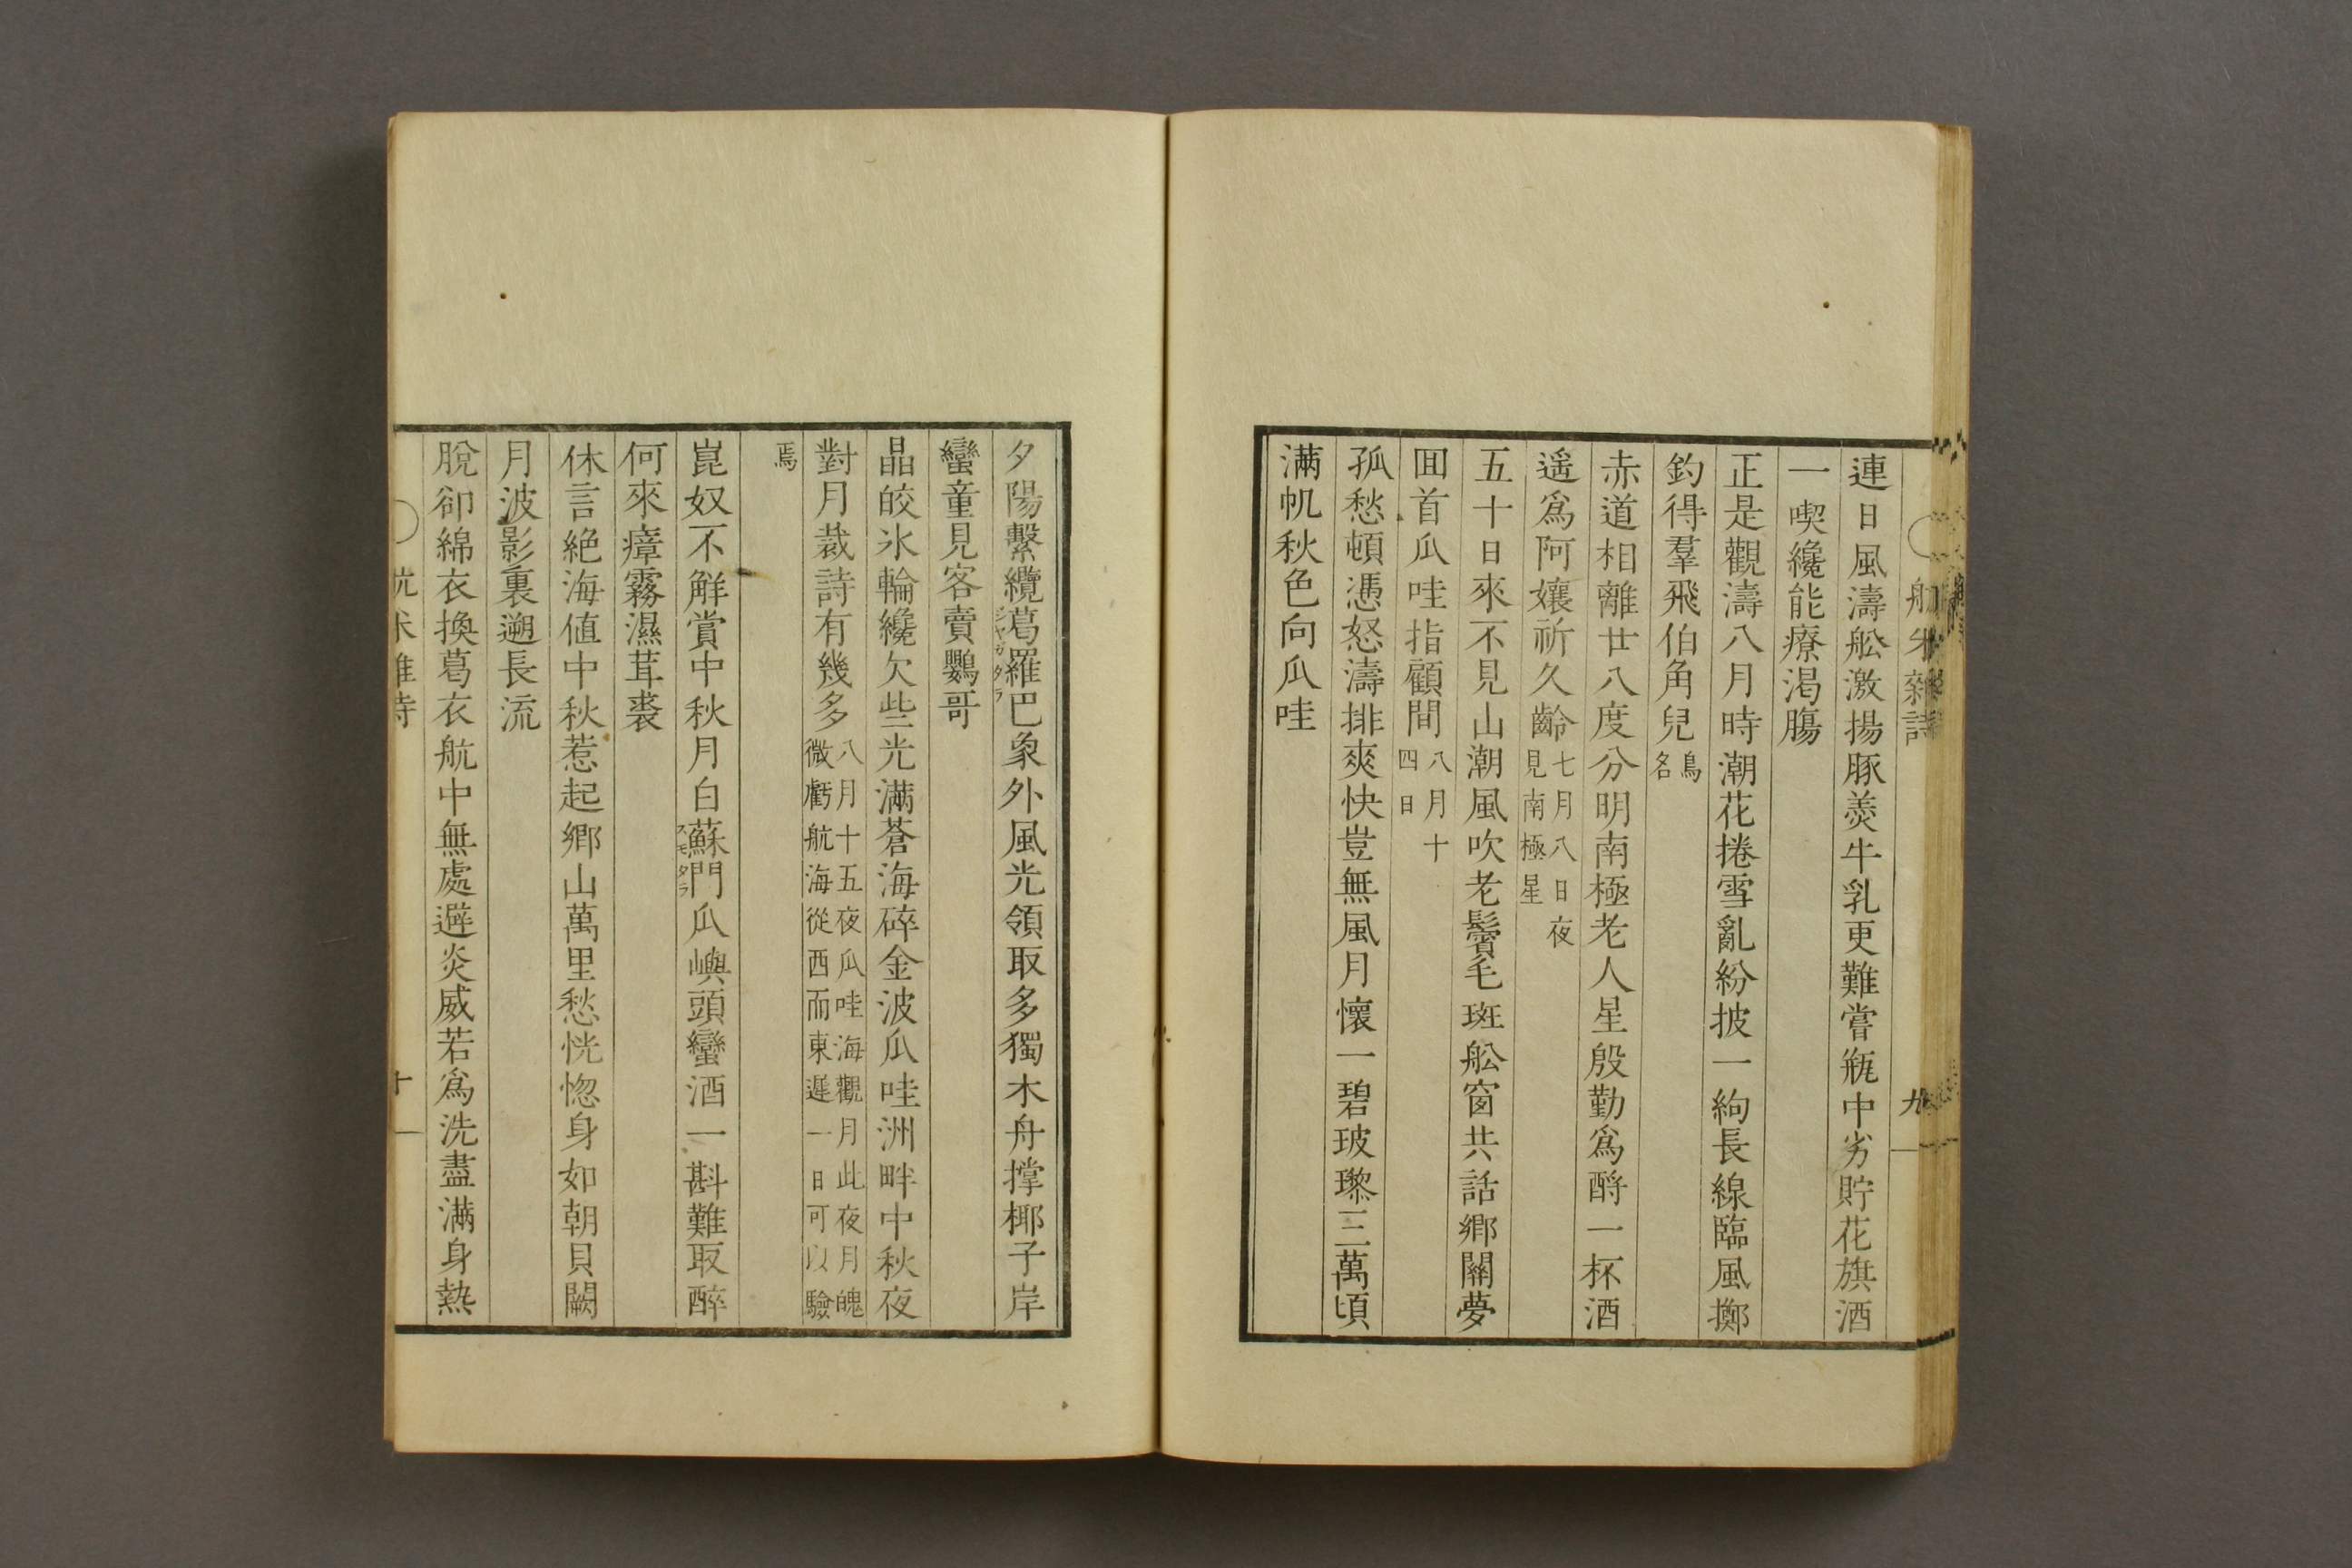 航米雜詩
九
連日風濤舩激揚豚羨牛乳更難嘗瓶中劣貯花旗酒
一喫纔能療渴膓
正是觀濤八月時潮花捲雪亂紛披一絢長線臨風擲
釣得羣飛伯角兒鳥名
赤道相離廿八度分明南極老人星殷勤爲酹一杯酒
遥爲阿孃祈久齡七月八日夜見南極星
五十日來不見山潮風吹老鬢毛斑舩窗共話鄉關夢
囬首瓜哇指顧間八月十四日
孤愁頓憑怒濤排爽快豈無風月懷一碧玻瓈三萬頃
滿帆秋色向瓜哇
夕陽繫纜葛羅巴象外風光領取多獨木舟撑椰子岸
ジヤガタラ
蠻童見客賣鸚哥
晶皎氷輪纔欠些光滿蒼海碎金波瓜哇洲畔中秋夜
對月裁詩有幾多八月十五夜瓜哇海觀月此夜月魄微虧航海從西而東遲一日可以驗
焉
崑奴不解賞中秋月白蘇門瓜嶼頭蠻酒一斟難取醉
スモタラ
何來瘴霧濕茸裘
休言絕海值中秋惹起鄉山萬里愁恍惚身如朝貝闕
月波影裏遡長流
脫卻綿衣換葛衣航中無處避炎威若爲洗盡滿身熱
航米雜詩
十